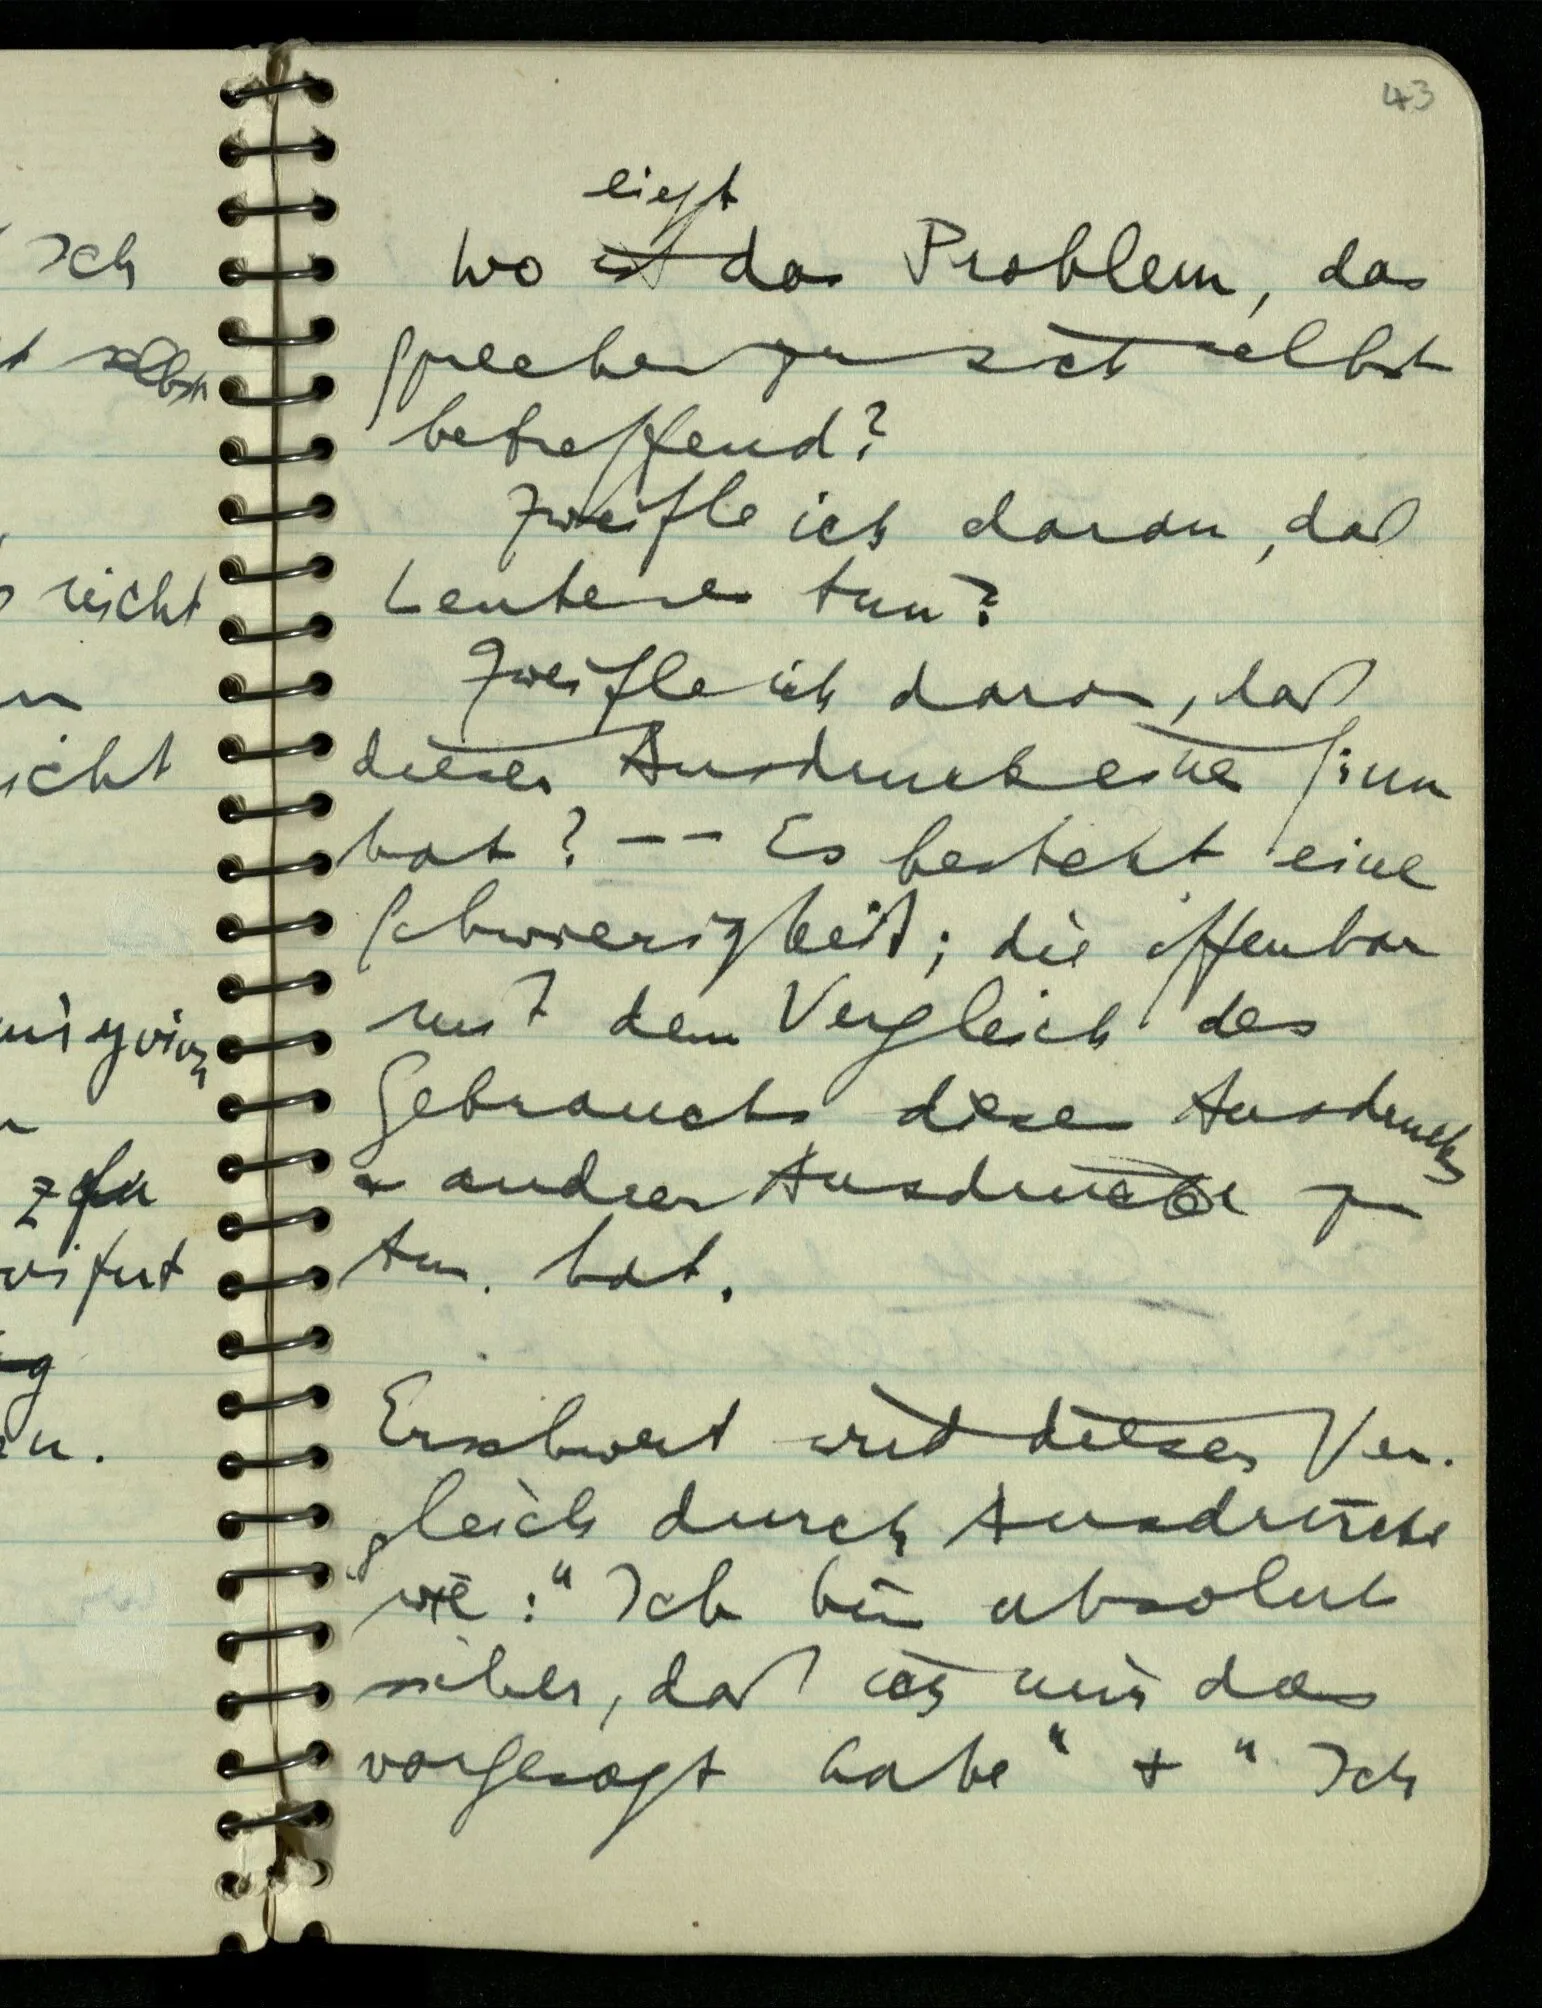 43
liegt
Wo ist das Problem, das
Sprechen zu sich selbst
betreffend?
Zweifle ich daran, daß
Leute es tun?
Zweifle ich daran, daß
dieser Ausdruck einen Sinn
hat? -- Es besteht eine
Schwierigkeit; die offenbar
mit dem Vergleich des
Gebrauchs dieses Ausdrucks
& andrer Ausdrücke zu
tun hat.
Erschwert wird dieser Ver-
gleich durch Ausdrücke
wie: "Ich bin absolut
sicher, daß ich mir das
vorgesagt habe" & "Ich
Ich
selbst
nicht